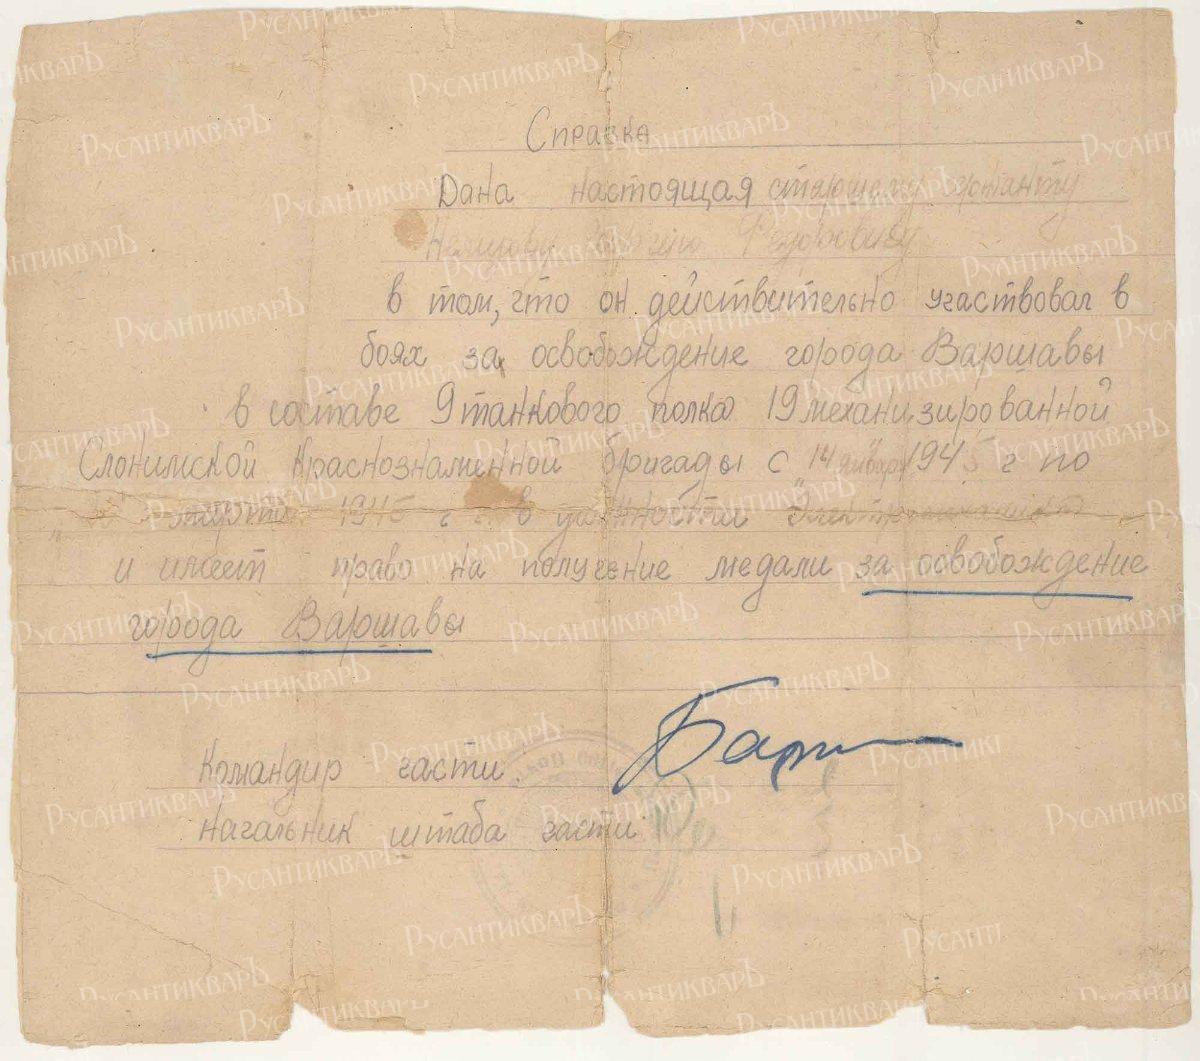 Справка
Дана настоящая старшему сержанту
Федоровичу
в том, что он действительно участвовал в
боях за освобождение города Варшавы
в составе 9 танкового полка 19 механизированной
Слонимской Краснознаменной бригады с 14 января 1945 г по
1945 г в должности
и имеет право на получение медали за освобождение
города Варшавы
Командир части
Начальник штаба части
РусАнтикварЪ